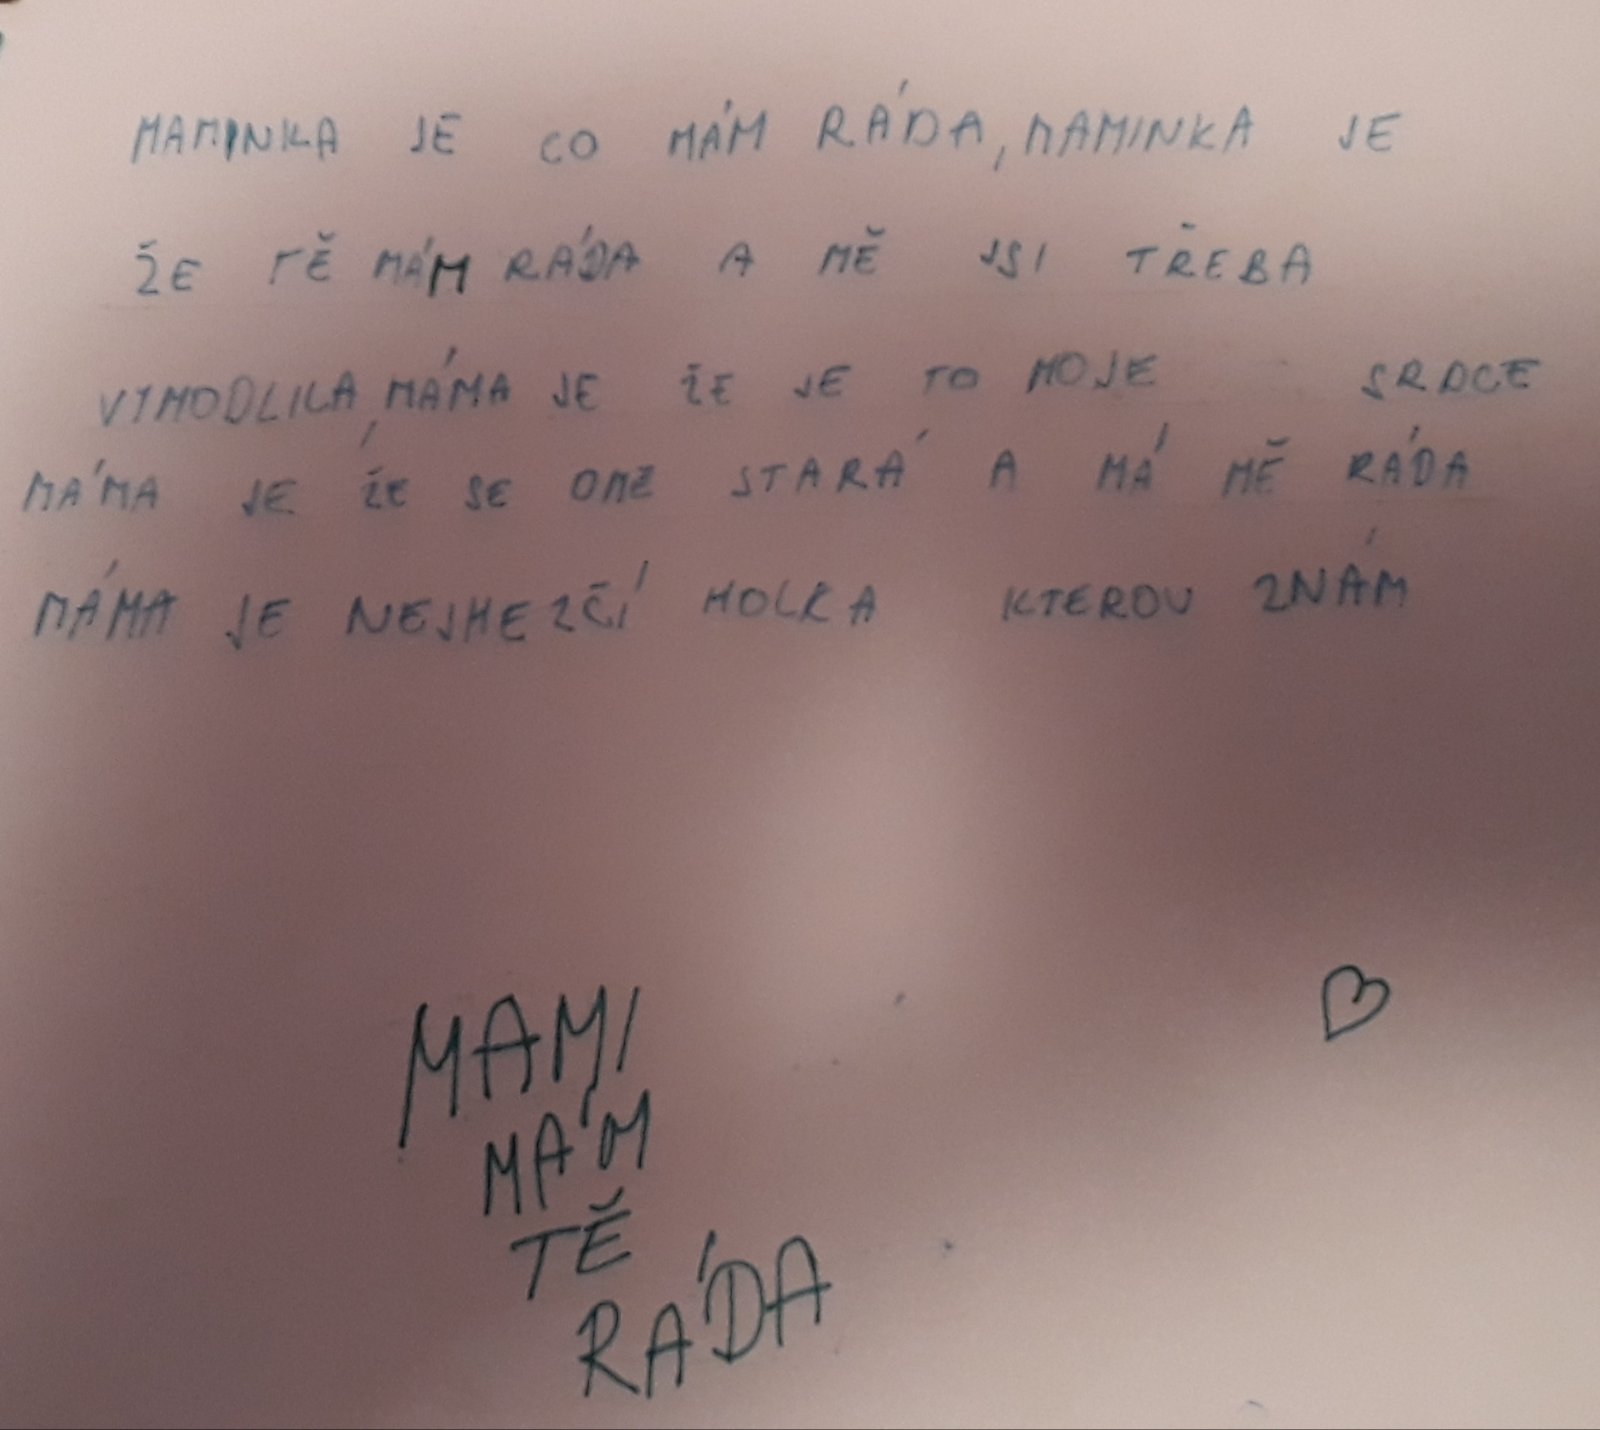 MAMINKA JE CO MÁM RÁDA, MAMINKA JE
ŽE TĚ MÁM RÁDA A MĚ JSI TŘEBA
VIMODLILA, MÁMA JE ŽE JE TO MOJE SRDCE
MÁMA JE ŽE SE OME STARÁ A MÁ MĚ RÁDA
MÁMA JE NEJHEZČÍ HOLKA KTEROU ZNÁM
MAMI
MÁM
TĚ
RÁDA